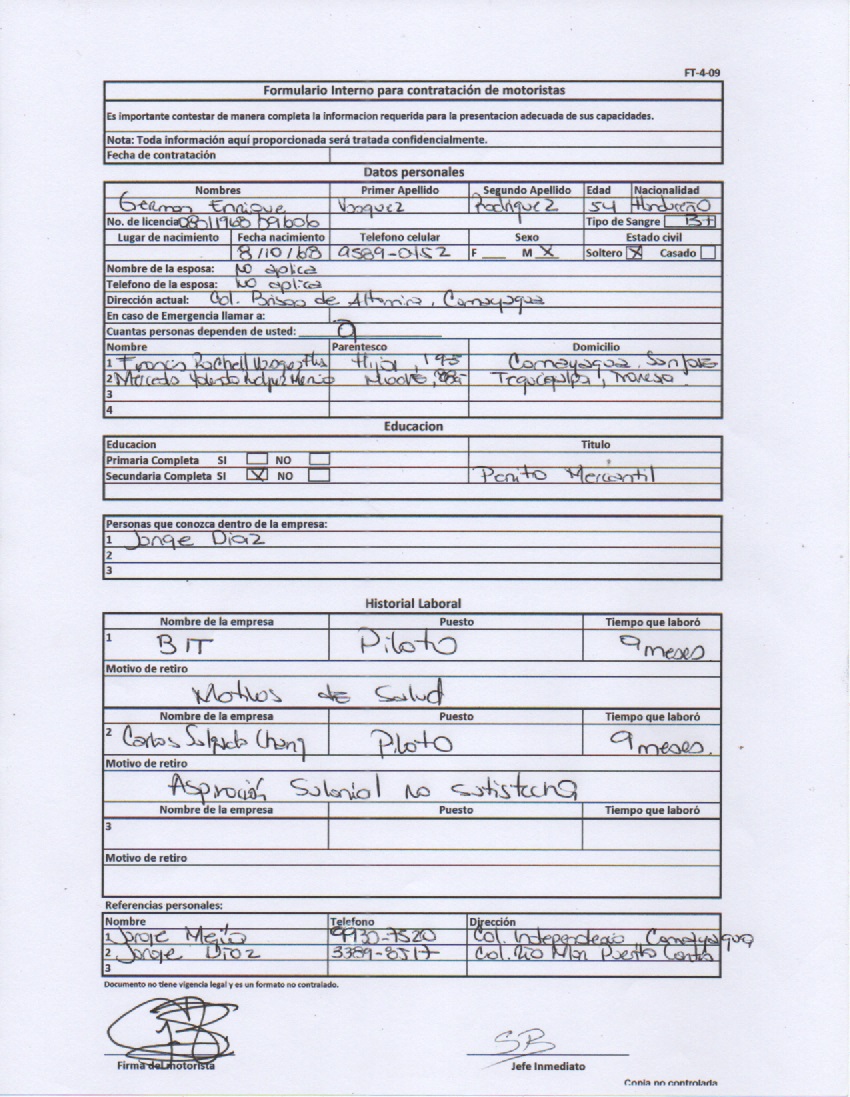 FT-4-09
Formulario Interno para contratación de motoristas
Es importante contestar de manera completa la informacion requerida para la presentacion adecuada de sus capacidades.
Nota: Toda información aquí proporcionada será tratada confidencialmente.
Fecha de contratación
Datos personales
Nombres Primer Apellido Segundo Apellido Edad Nacionalidad
German Enrique Vasquez Rodriguez 54 Hondureño
No. de licencia Tipo de Sangre B+
Lugar de nacimiento Fecha nacimiento Telefono celular Sexo Estado civil
8/10/68 9589-0152 F M X Soltero X Casado
Nombre de la esposa: No aplica
Telefono de la esposa: No aplica
Dirección actual: Col. Brisas de Altamira, Comayagua
En caso de Emergencia llamar a:
Cuantas personas dependen de usted:
Nombre Parentesco Domicilio
1 Hija, Comayagua, San Jose
2 Madre, Tegucigalpa,
3
4
Educacion
Educacion Titulo
Primaria Completa SI NO
Secundaria Completa SI X NO Perito Mercantil
Personas que conozca dentro de la empresa:
1 Jorge Diaz
2
3
Historial Laboral
Nombre de la empresa Puesto Tiempo que laboró
1 BIT Piloto 9 meses
Motivo de retiro
Motivos de Salud
Nombre de la empresa Puesto Tiempo que laboró
2 Carlos Salgado Chang Piloto 9 meses.
Motivo de retiro
Aspiración Salarial no satisfecha
Nombre de la empresa Puesto Tiempo que laboró
3
Motivo de retiro
Referencias personales:
Nombre Telefono Dirección
1 Jorge Mejia 9930-7520 Col. Independencia Comayagua
2 Jorge Diaz 3389-8517 Col. Rio Mar Puerto Cortes
3
Documento no tiene vigencia legal y es un formato no contralado.
SB
Firma del motorista Jefe Inmediato
Copia no controlada